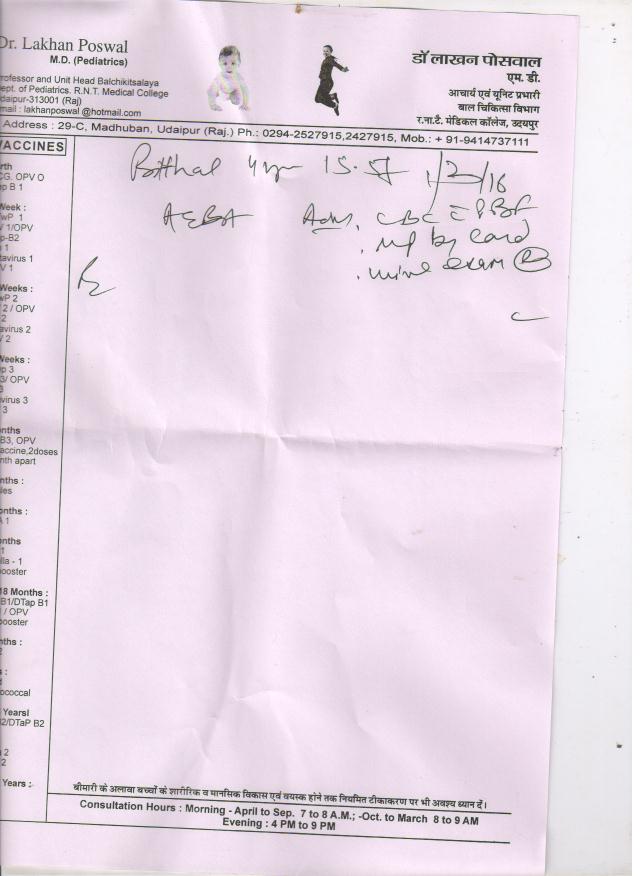 Dr. Lakhan Poswal
M.D. (Pediatrics)
rofessor and Unit Head Balchikitsalaya
ept. of Pediatrics. R.N.T. Medical College
daipur-313001 (Raj)
mail : lakhanposwal @hotmail.com
डॉ लाखन पोसवाल
एम. डी.
आचार्य एवं यूनिट प्रभारी
बाल चिकित्सा विभाग
र.ना.टै. मेडिकल कॉलेज, उदयपुर
Address : 29-C, Madhuban, Udaipur (Raj.) Ph.: 0294-2527915,2427915, Mob.: + 91-9414737111
VACCINES
rth
CG. OPV O
p B 1
Week :
wP 1
V 1/OPV
p-B2
1
tavirus 1
V 1
Weeks :
wP 2
2 / OPV
2
avirus 2
V 2
Weeks :
p 3
3/ OPV
3
virus 3
3
nths
B3, OPV
accine,2doses
nth apart
nths :
les
onths :
A 1
onths
1
lla - 1
ooster
18 Months :
B1/DTap B1
/ OPV
ooster
nths :
2
s :
ococcal
Years|
2/DTaP B2
2
2
Years :-
4 yr 15.5
1/3/16
Adv. CBC PBF
. mp by card
. urine exam (R)
Rx
बीमारी के अलावा बच्चों के शारीरिक व मानसिक विकास एवं वयस्क होने तक नियमित टीकाकरण पर भी अवश्य ध्यान दें।
Consultation Hours : Morning - April to Sep. 7 to 8 A.M.; -Oct. to March 8 to 9 AM
Evening : 4 PM to 9 PM